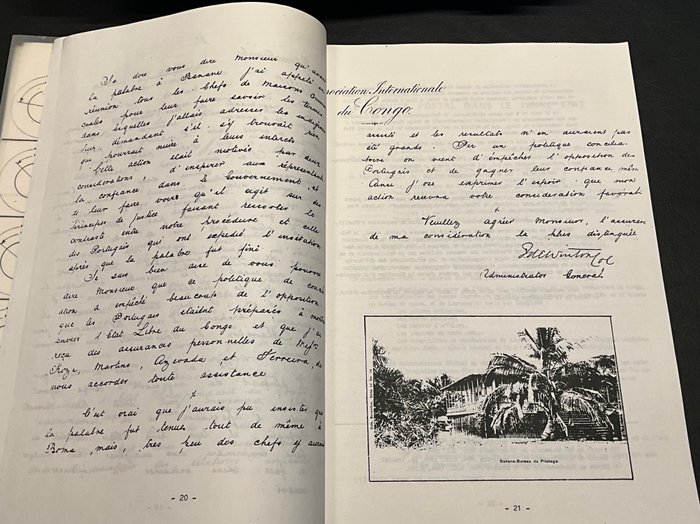 Je dois vous dire Monsieur qu'avant
la palabre à Banane j'ai appelé en
réunion tous les Chefs de Maisons Commer
ciales pour leur faire savoir les termes
dans lesquelles j'allais adresser les indigènes
leur demandant s'il s'y trouvait rien
qui pourrait nuire à leurs interêts
Cette action était motivée par deux
considérations, d'inspirer aux réprésentants
la confiance dans le Gouvernement et
à leur faire voir qu'il agit sur des
principes de justice faisant ressortir le
contraste entre notre procédure et celle
des Portugais qui ont expedié l'invitation
après que la palabre fut fini
Je suis bien aise de vous pouvoir
dire Monsieur que ce politique de concili
ation a empêché beaucoup de l'opposition
que les Portugais etaient préparés à montrer
envers l'Etat Libre du Congo et que j'ai
reçu des assurances personnelles de Messrs
Roza, Martins, Azevada et Ferreira, de
nous accorder toute assistance
C'est vrai que j'aurais pu insister que
la palabre fut tenue tout de même à
Boma, mais, très peu des chefs y auraient
- 20 -
ssociation Internationale
du Congo.
POSTAL DANS LE JEUNE ETAT
assisté et les resultats n'en auraient pas
été grands. Par un politique concilia-
toire on vient d'empêcher l'opposition des
Portugais et de gagner leur confiance même
Ainsi j'ose exprimer l'espoir que mon
action recevra votre consideration favorable
Veuillez agréer Monsieur, l'assurance
de ma consideration la plus distinguée
F de Winton Col
Administrator General
Banana-Bureau du Pilotage.
- 21 -